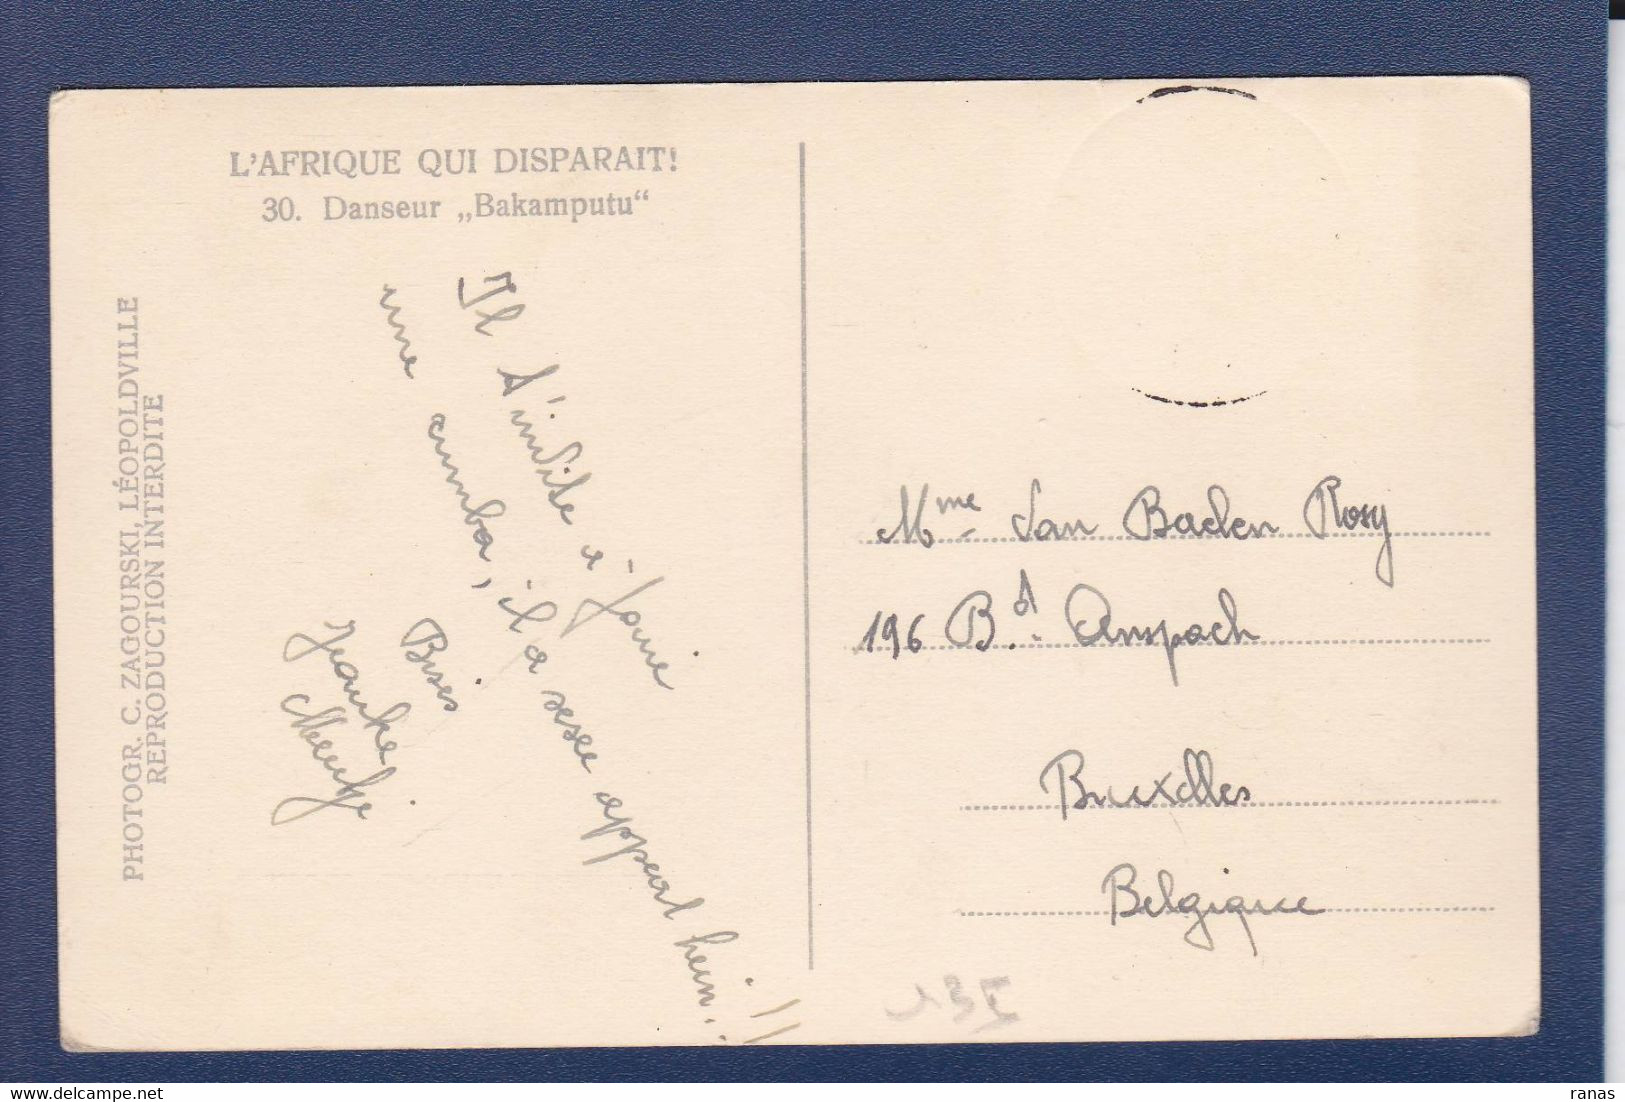 L'AFRIQUE QUI DISPARAIT!
30. Danseur „Bakamputu“
PHOTOGR. C. ZAGOURSKI, LÉOPOLDVILLE
REPRODUCTION INTERDITE
Il t'invite à faire
une rumba, il a sexe appeal hein!!
Bises
Mme Van Baden Rosy
196 Bd. Anspach
Bruxelles
Belgique
ranas